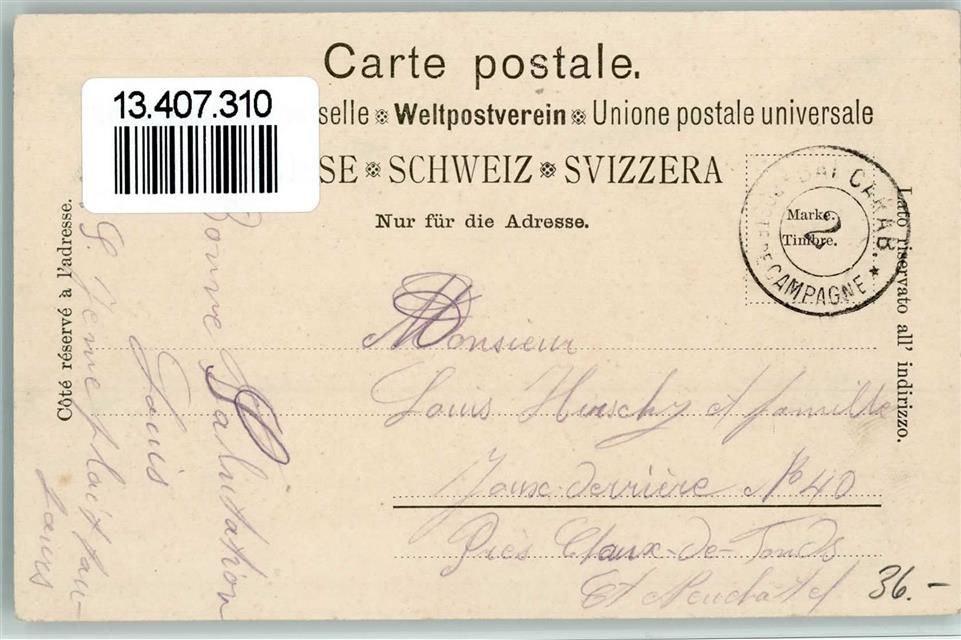 Carte postale.
13.407.310
selle Weltpostverein Unione postale universale
SE SCHWEIZ SVIZZERA
Nur für die Adresse.
Marke.
Timbre.
2
BAT CARAB.
DE CAMPAGNE
Côté réservé à l'adresse.
Lato riservato all' indirizzo.
Monsieur
Louis Hirschy et famille
Joux-derrière No 40
Près Chaux-de-Fonds
Ct Neuchâtel
Bonne Salutation
Louis
plait
36.-